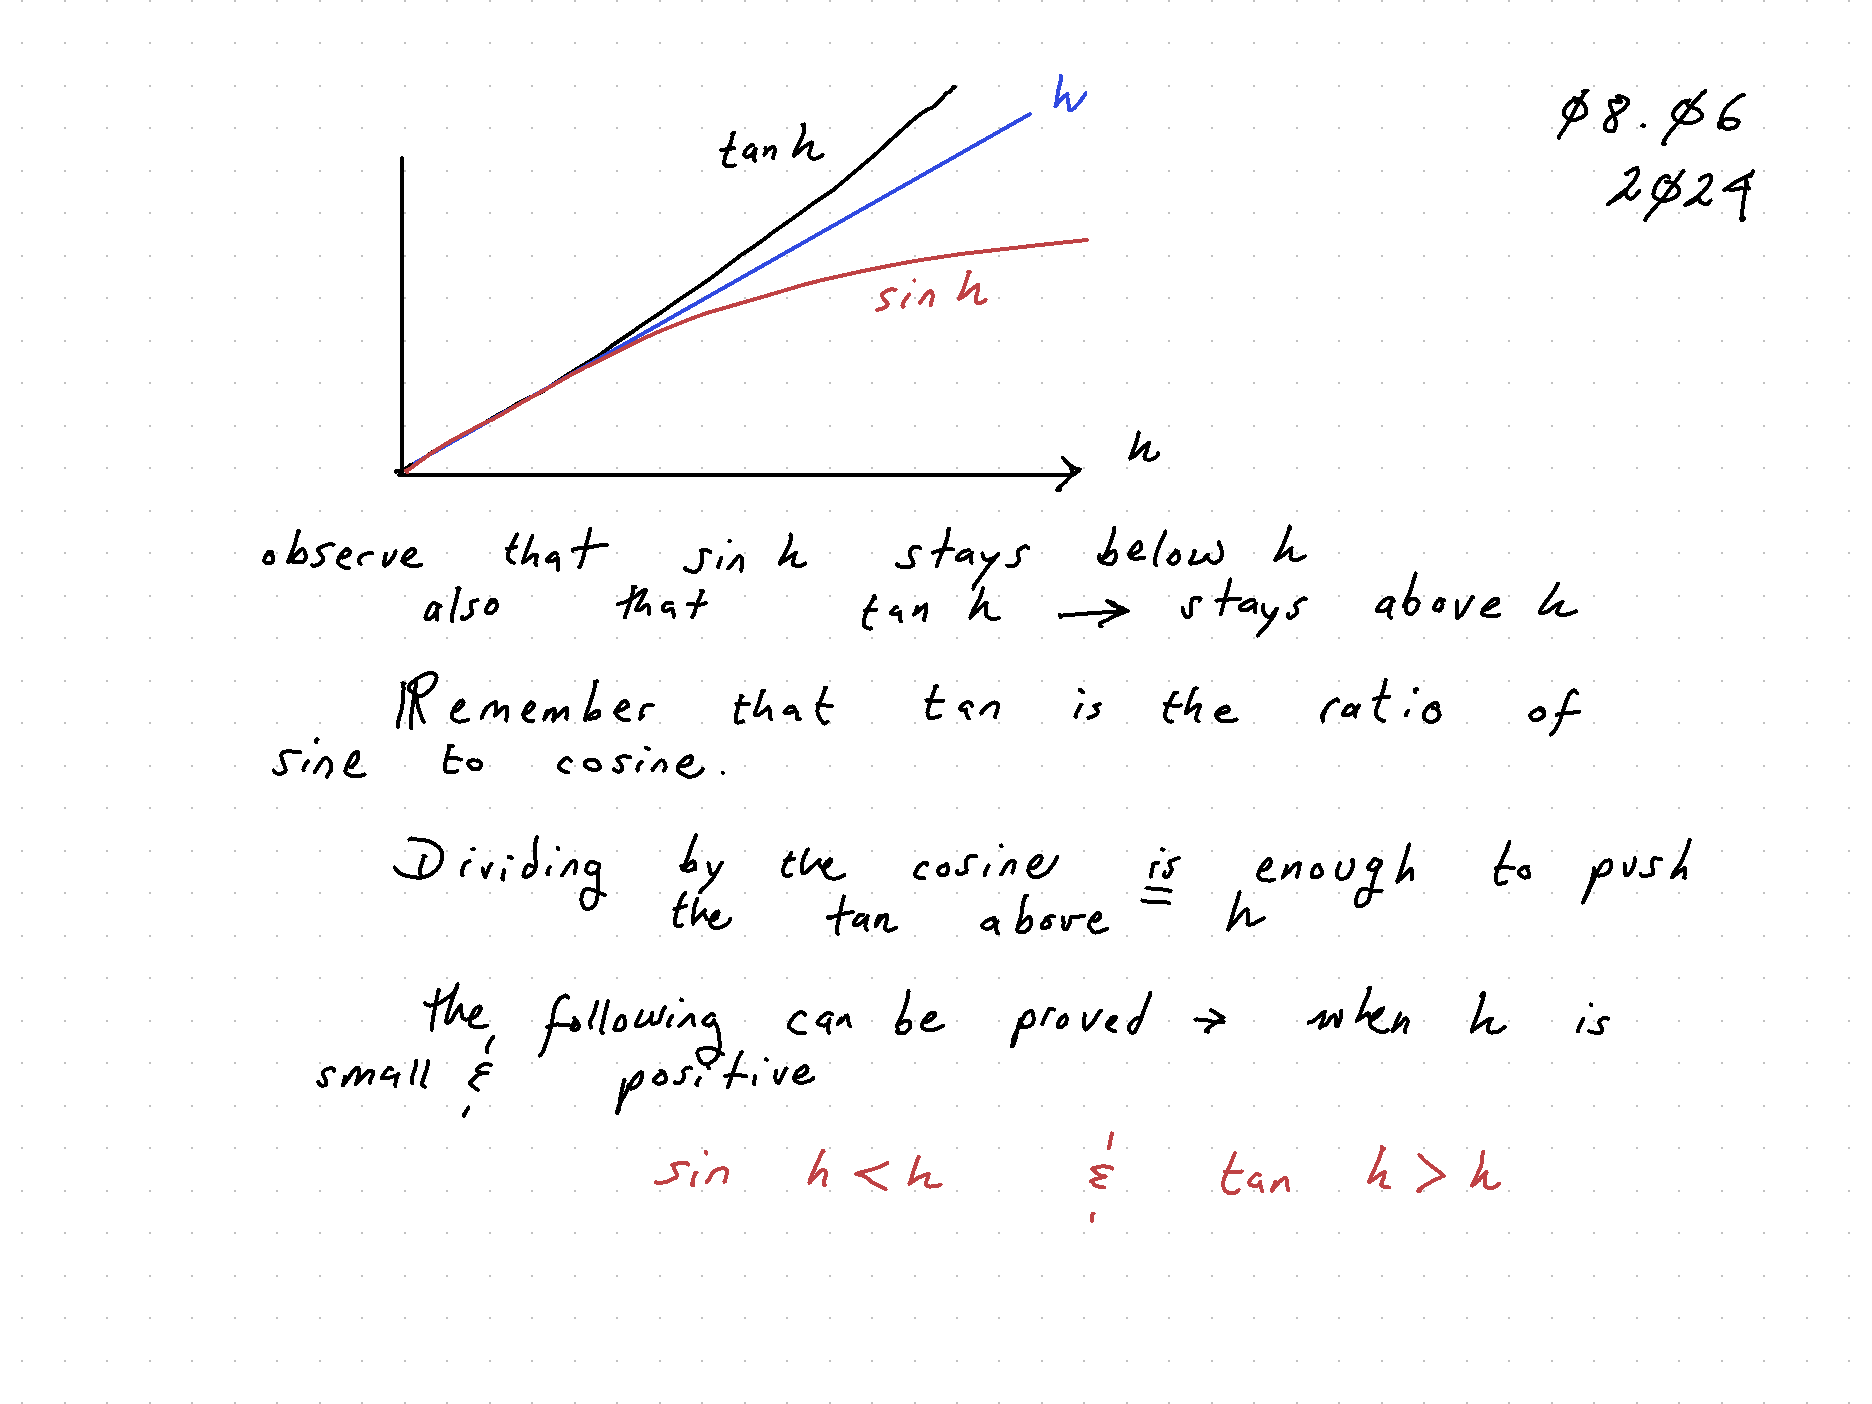 h
tan h
ø8.ø6
2ø24
sin h
h
observe that sin h stays below h
also that tan h → stays above h
Remember that tan is the ratio of
sine to cosine.
Dividing by the cosine is enough to push
the tan above h
the following can be proved → when h is
small & positive
sin h < h & tan h > h